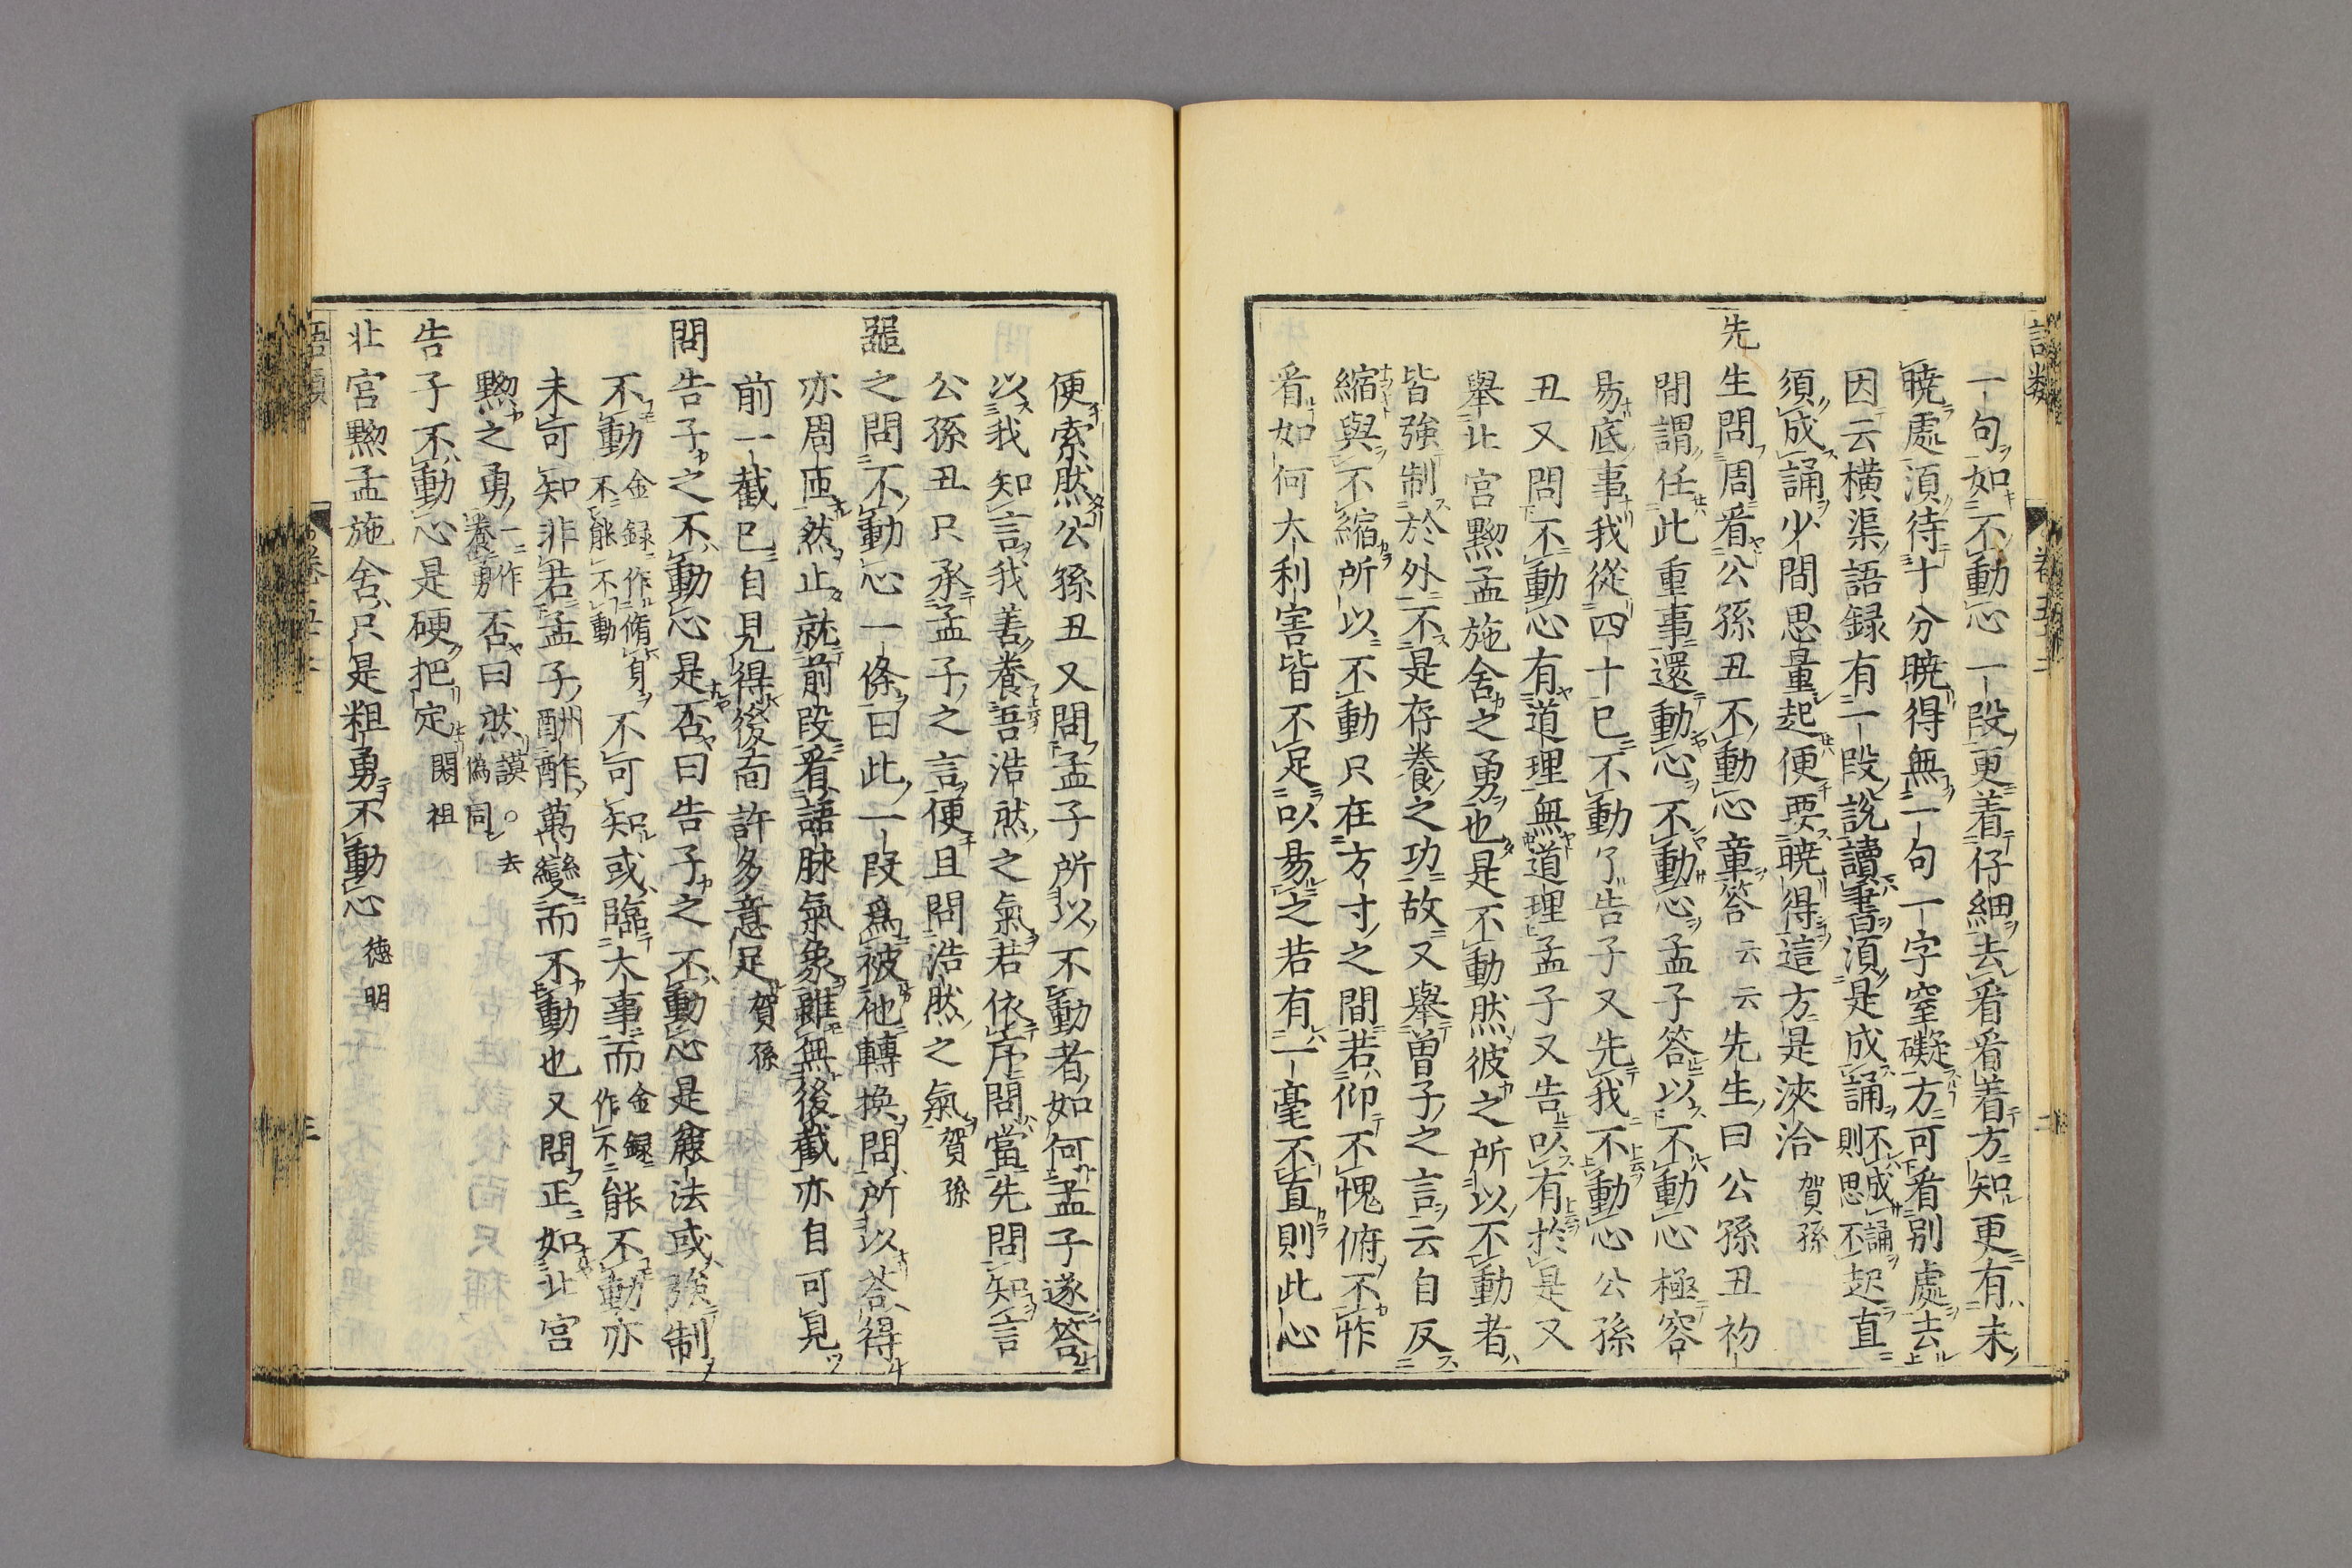 一句如不動心一段更着仔細去看看着方知更有未
曉處須待十分曉得無一句一字窒礙方可看别處去
因云橫渠語録有一段說讀書須是成誦不成誦則思不起直
須成誦少間思量起便要曉得這方是浹洽賀孫
先生問周看公孫丑不動心章答云云先生曰公孫丑初
間謂任此重事還動心不動心孟子答以不動心極容
易底事我從四十已不動了告子又先我不動心公孫
丑又問不動心有道理無道理孟子又告以有於是又
舉北宮黝孟施舍之勇也是不動然彼之所以不動者
皆強制於外不是存養之功故又舉曽子之言云自反
縮與不縮所以不動只在方寸之間若仰不愧俯不怍
看如何大利害皆不足以易之若有一毫不直則此心
便索然公孫丑又問孟子所以不動者如何孟子遂答
以我知言我善養吾浩然之氣若依序問當先問知言
公孫丑只承孟子之言便且問浩然之氣賀孫
器之問不動心一條曰此一段為被他轉換問所以荅得
亦周匝然止就前段看語脉氣象雖無後截亦自可見
前一截已自見得後面許多意足賀孫
問告子之不動心是否曰告子之不動心是麄法或強制
不動金録作脩身不能不動不可知或臨大事而金録作不能不動亦
未可知非若孟子酬酢萬變而不動也又問正如北宮
黝之勇一作養勇否曰然謨○去偽同
告子不動心是硬把定閎祖
北宮黝孟施舍只是粗勇不動心德明